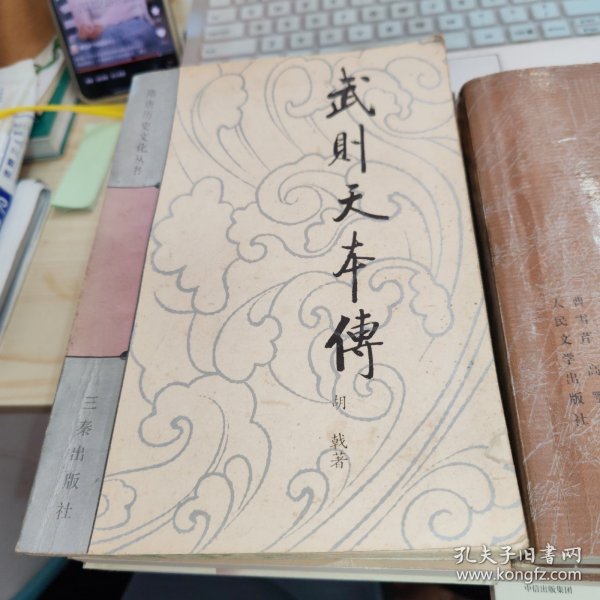 武則天本傳
胡戟著
隋唐历史文化丛书
三秦出版社
曹雪芹 高鹗
人民文学出版社
孔夫子旧书网
www.kongfz.com
中信出版集团